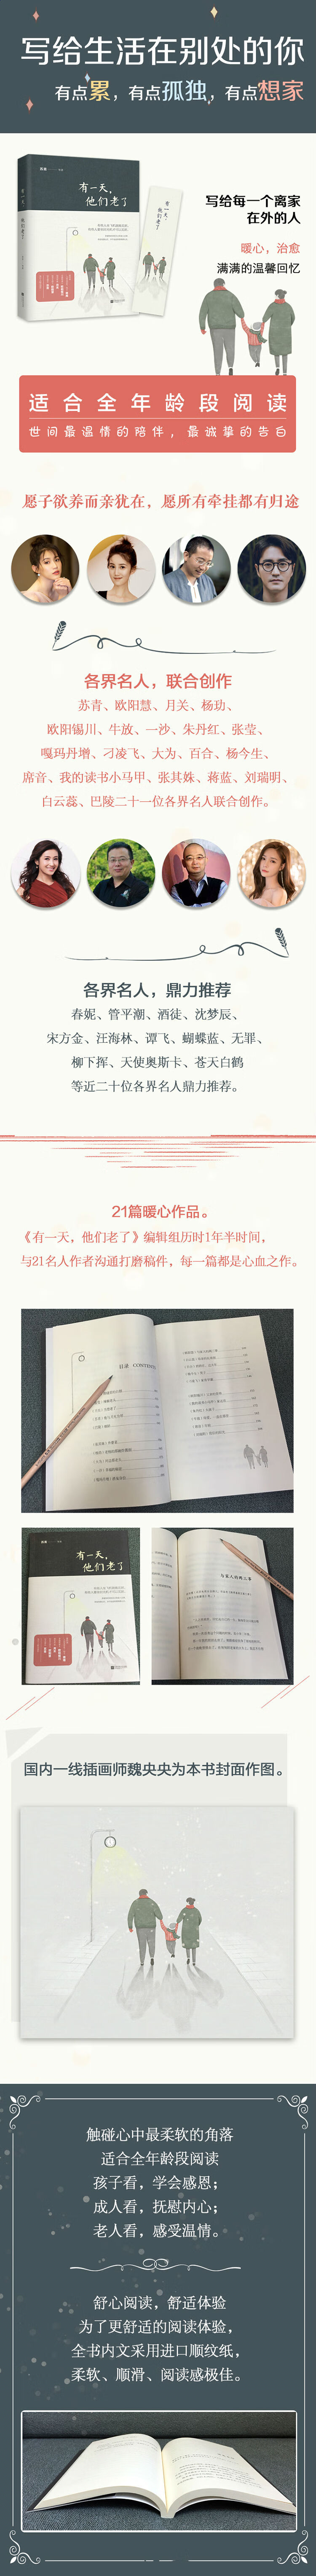 写给生活在别处的你
有点累，有点孤独，有点想家
有一天，
他们老了
有一天，他们老了
写给每一个离家
在外的人
暖心，治愈
满满的温馨回忆
适合全年龄段阅读
世间最温情的陪伴，最诚挚的告白
愿子欲养而亲犹在，愿所有牵挂都有归途
各界名人，联合创作
苏青、欧阳慧、月关、杨玏、
欧阳锡川、牛放、一沙、朱丹红、张莹、
嘎玛丹增、刁凌飞、大为、百合、杨今生、
席音、我的读书小马甲、张其姝、蒋蓝、刘瑞明、
白云蕊、巴陵二十一位各界名人联合创作。
各界名人，鼎力推荐
春妮、管平潮、酒徒、沈梦辰、
宋方金、汪海林、谭飞、蝴蝶蓝、无罪、
柳下挥、天使奥斯卡、苍天白鹤
等近二十位各界名人鼎力推荐。
21篇暖心作品。
《有一天，他们老了》编辑组历时1年半时间，
与21名人作者沟通打磨稿件，每一篇都是心血之作。
目录 CONTENTS
有一天，
他们老了
与家人的两三事
国内一线插画师魏央央为本书封面作图。
触碰心中最柔软的角落
适合全年龄段阅读
孩子看，学会感恩；
成人看，抚慰内心；
老人看，感受温情。
舒心阅读，舒适体验
为了更舒适的阅读体验，
全书内文采用进口顺纹纸，
柔软、顺滑、阅读感极佳。